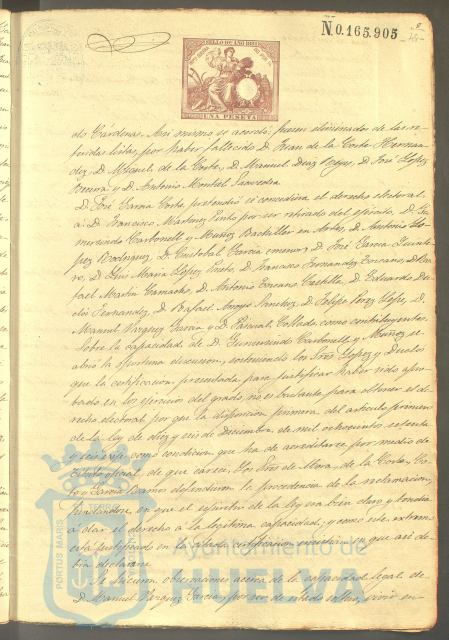 N.0.165.905
SELLO DE AÑO 1881
UNA PESETA
do Cárdenas. Asi mismo se acordó: fuesen eliminados de las re-
feridas listas, por haber fallecido D. Juan de la Corte Hernan-
dez, D. Miguel de la Corte, D. Manuel Diaz D. José Lopez
Becerra y D. Antonio Montiel Saavedra.
D. José Garcia Corte pretendió se concediera el derecho electoral
á D. Francisco Martinez Pinto por ser retirado del ejército, D. Gu-
mersindo Carbonell y Muñoz Bachiller en Artes, D. Antonio Lo-
pez Rodriguez, D. Cristobal Garcia (menor), D. José Garcia
ro, D. Luis Maria Lopez Prieto, D. Ignacio Fernandez Toscano, D. Ra-
fael Martin Camacho, D. Antonio Toscano Castilla, D. Eduardo Du-
clós Fernandez, D. Rafael Sanchez, D. Felipe Perez D.
Manuel Vazquez Garcia y D. Pascual Collado, como contribuyentes.
Sobre la capacidad de D. Gumersindo Carbonell y Muñoz se
abrió la oportuna discusion, sosteniendo los Sres. Lopez y Duclós
que la certificacion presentada para justificar haber sido apro-
bado en los ejercicios del grado, no es bastante para obtener el de-
recho electoral por que la disposicion primera del articulo primero
de la ley de diez y seis de Diciembre de mil ochocientos setenta
y seis exije como condicion que ha de acreditarse por medio de
título oficial, de que carece. Los Sres. de Mora, de la Corte, Co-
to y Garcia Ramos defendieron la procedencia de la reclamacion,
fundandose, en que el espiritu de la ley era bien claro y tendia
á dar el derecho á la legítima capacidad, y como este extremo
está justificado en la citada certificacion, creian que asi de-
bia declararse.
Se hicieron observaciones acerca de la capacidad legal de
D. Manuel Vazquez Garcia, por ser de estado soltero, vivir en
Ayuntamiento de
HUELVA
PORTUS MARIS